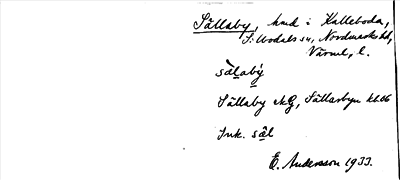 Sällaby, hmd i Kalleboda,
S. Modals sn, Nordmarks hd,
Värml. l.
sälaby
Sällaby AG, Sällarbyn kl. 66
Ink. säl
E. Andersson 1933.